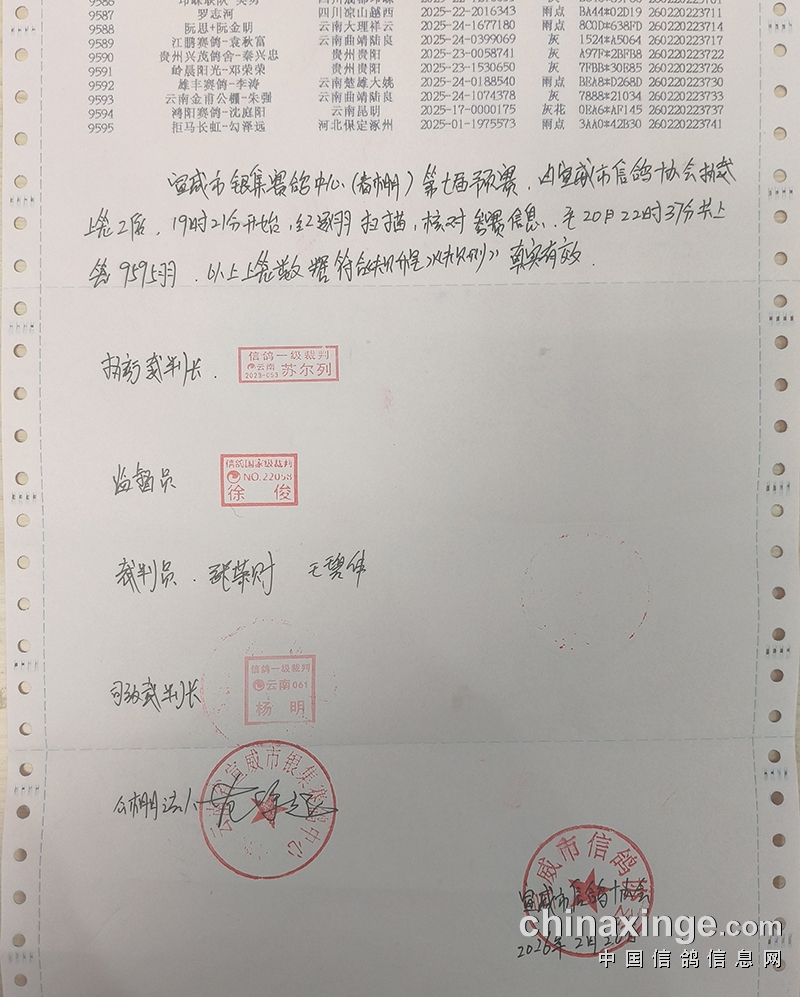 9587 罗志河 四川凉山越西 2025-22-2016343 雨点 BA44*02D19 260220223711
9588 阮思+阮金明 云南大理祥云 2025-24-1677180 雨点 8C0D*638FD 260220223714
9589 江鹏赛鸽-袁秋富 云南曲靖陆良 2025-24-0399069 灰 1524*A5064 260220223717
9590 贵州兴茂鸽舍-秦兴忠 贵州贵阳 2025-23-0058741 灰 A97F*2BFB8 260220223722
9591 岭晨阳光-邓荣荣 贵州贵阳 2025-23-1530650 灰 7FBB*30E85 260220223726
9592 雄丰赛鸽-李涛 云南楚雄大姚 2025-24-0188540 雨点 BEA8*D268D 260220223730
9593 云南金甫公棚-朱强 云南曲靖陆良 2025-24-1074378 灰 7888*21034 260220223733
9594 鸿阳赛鸽-沈庭阳 云南昆明 2025-17-0000175 灰花 0BA6*AF145 260220223737
9595 拒马长虹-勾泽远 河北保定涿州 2025-01-1975573 雨点 3AA0*42B30 260220223741
宣威市银集赛鸽中心(春棚)第七届预赛,由宣威市信鸽协会裁
上笼工作,19时21分开始,经逐羽扫描,核对参赛信息,至20日22时37分共上
笼9595羽.以上上笼数据符合《规程》《规则》真实有效.
执行裁判长.
信鸽一级裁判
云南 苏尔列
2023-053
监督员
信鸽国家级裁判
NO.22058
徐俊
裁判员.
司放裁判长
信鸽一级裁判
云南061
杨明
公棚法人
宣威市银集赛鸽中心
威市信鸽协会
宣威市信鸽协会
2026年2月20日
chinaxinge.com
中国信鸽信息网